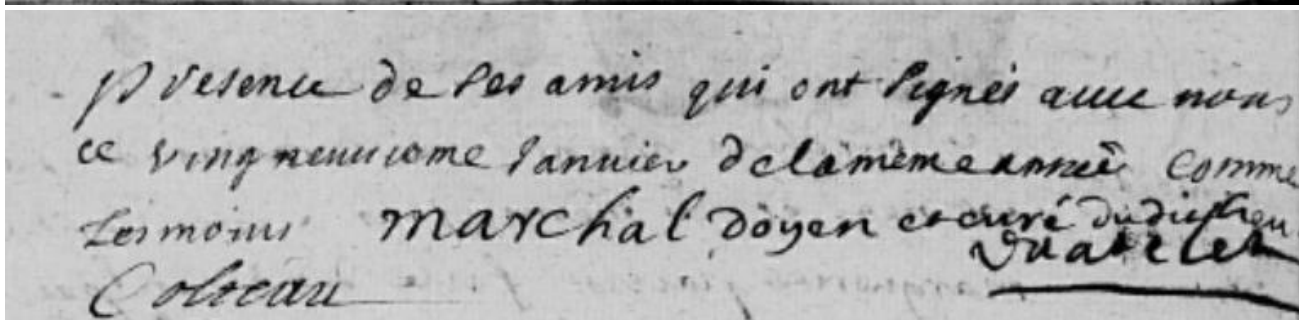 presence de ses amis qui ont signés avec nous
ce vingneuvieme Janvier de la même année comme
tesmoins Marchal Doyen et curé dudict lieu